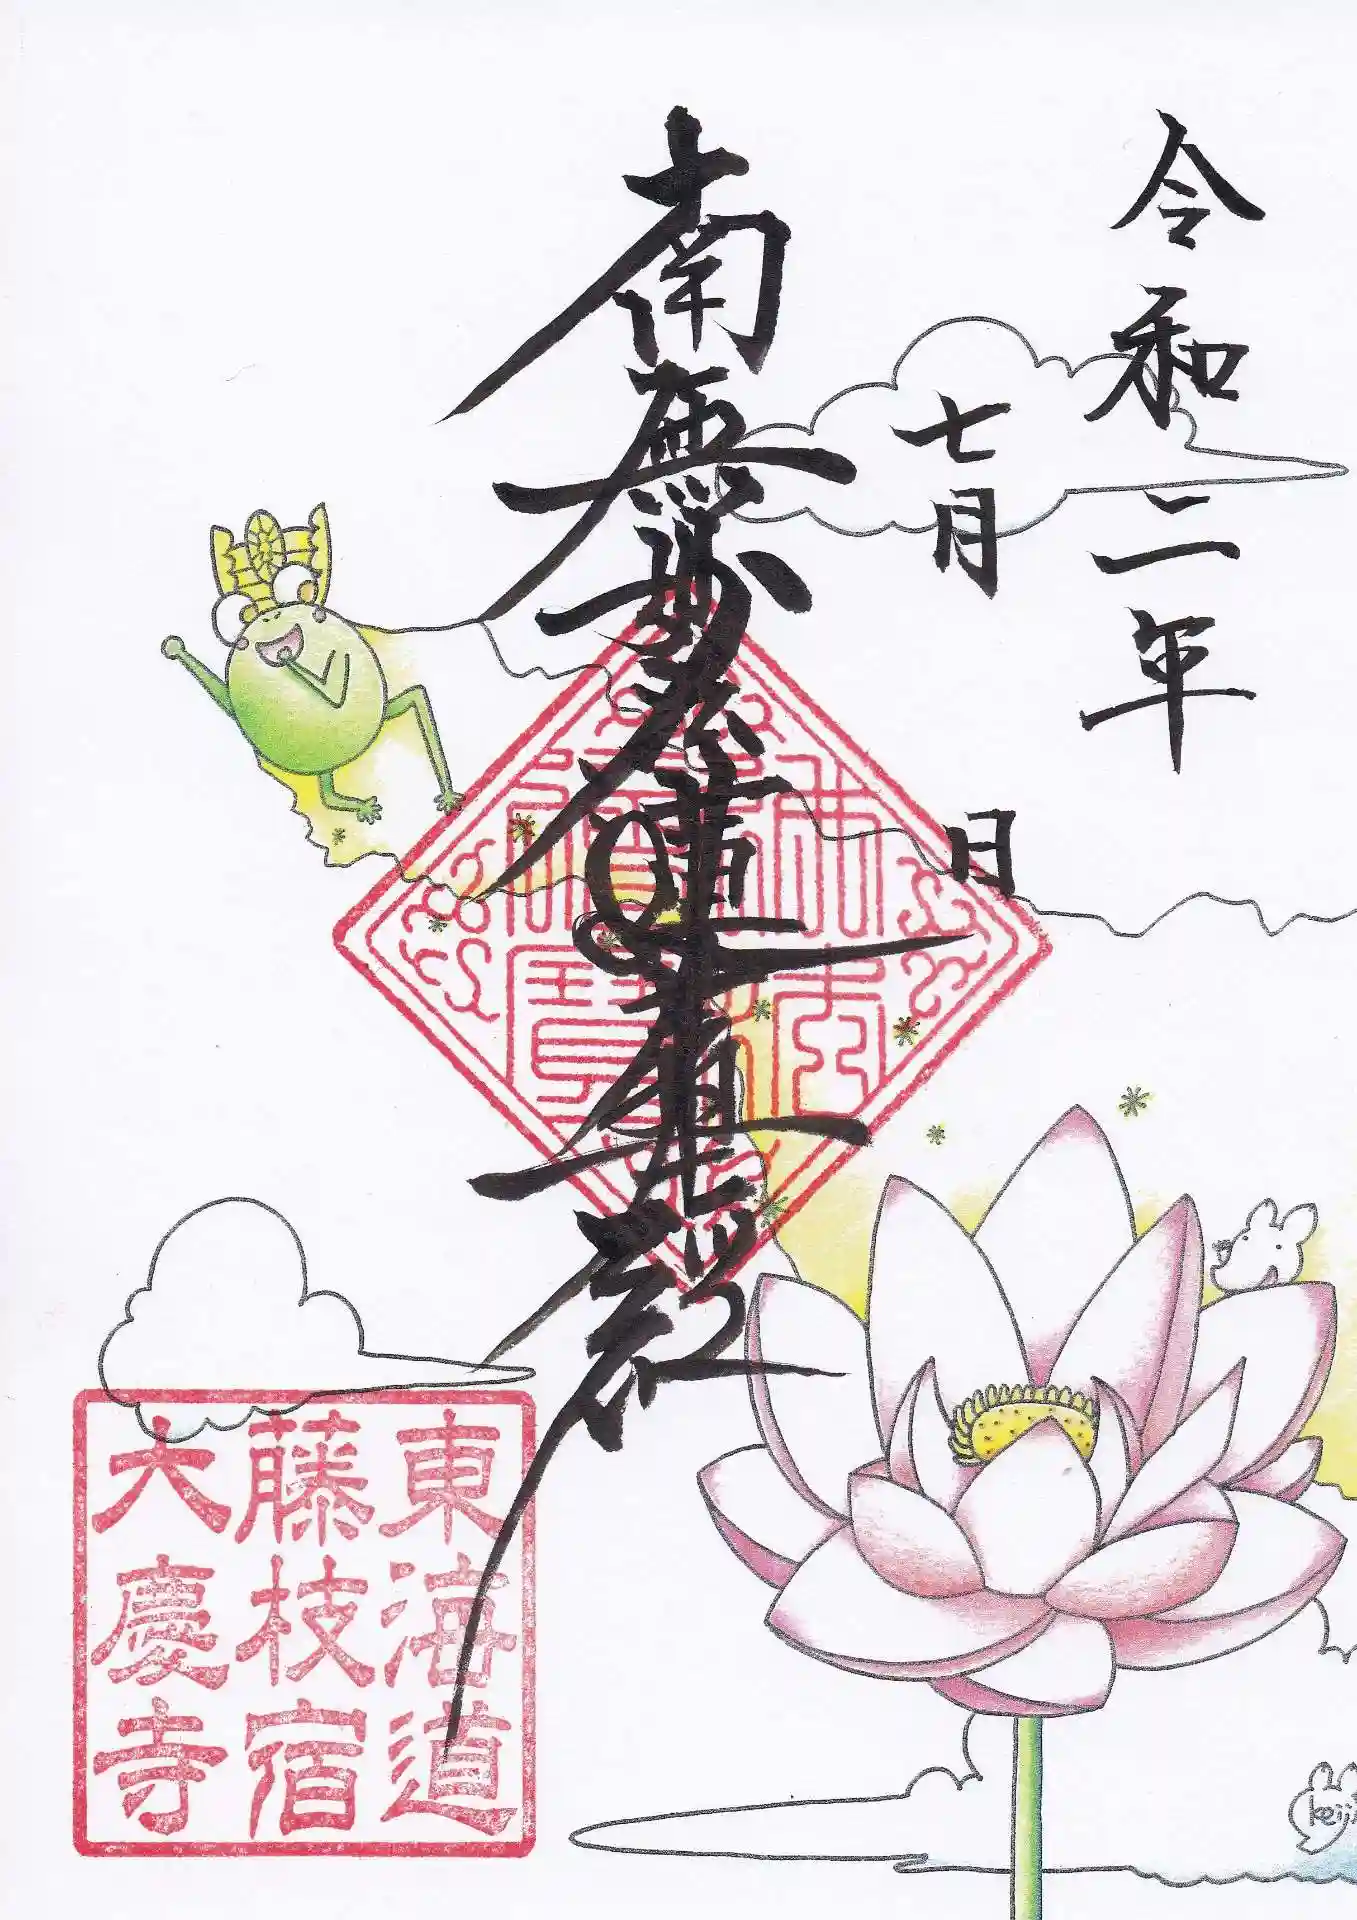 令和二年
七月 日
南無妙法蓮華経
佛法
僧寶
東海道
藤枝宿
大慶寺
keiji